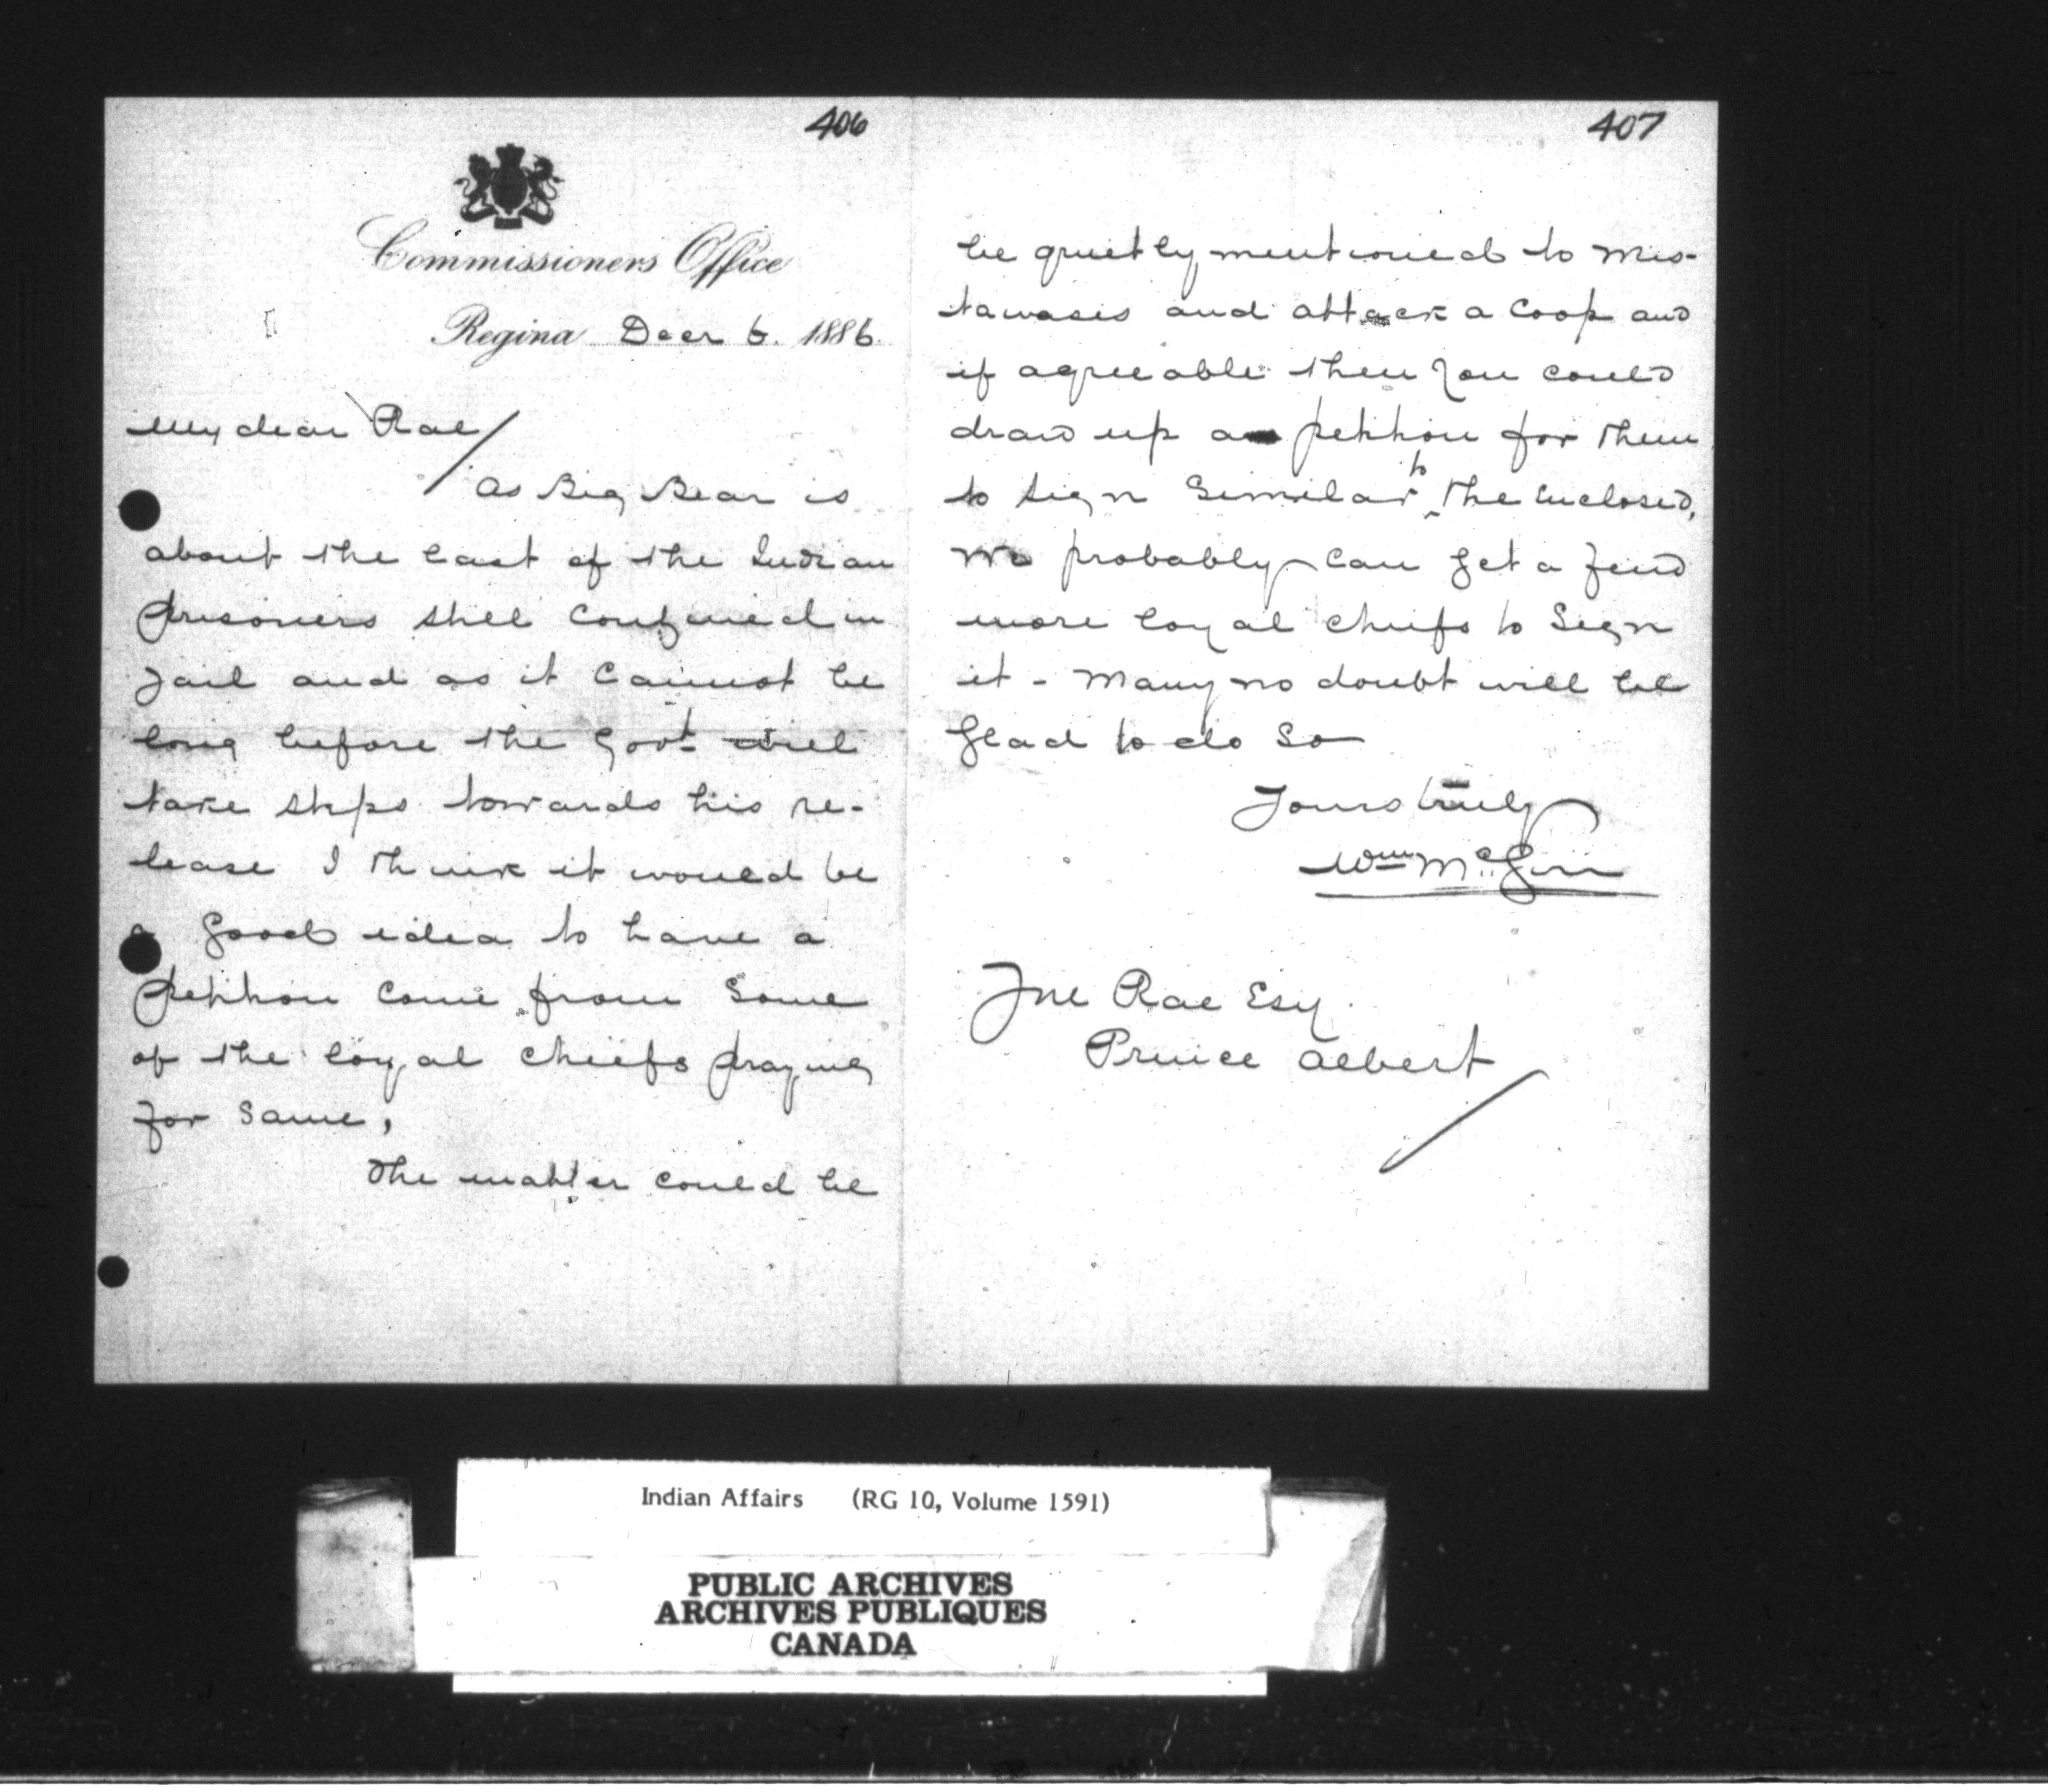 406
Commissioners Office
Regina Decr 6. 1886.
My dear Rae/
As Big Bear is
about the last of the Indian
prisoners still confined in
jail and as it cannot be
long before the Govt will
take steps towards his re-
lease I think it would be
a good idea to have a
petition come from some
of the loyal chiefs praying
for same,
The matter could be
407
be quietly mentioned to Mis-
tawasis and attack a Coop and
if agreeable then you could
draw up a petition for them
to sign similar to the enclosed,
We probably can get a few
more loyal chiefs to sign
it - many no doubt will be
glad to do so
Yours truly
Wm McGirr
Jno Rae Esq.
Prince Albert
Indian Affairs (RG 10, Volume 1591)
PUBLIC ARCHIVES
ARCHIVES PUBLIQUES
CANADA